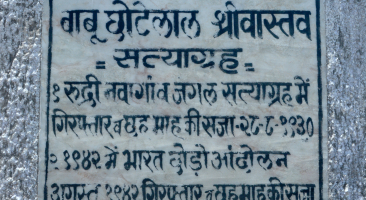 बाबू छोटेलाल श्रीवास्तव
= सत्याग्रह =
१ रुद्री नवागांव जंगल सत्याग्रह में
गिरफ्तार व छह माह की सजा-२८-८-१९३०
२ १९४२ में भारत छोड़ो आंदोलन
अगस्त १९४२ गिरफ्तार व छह माह की सजा